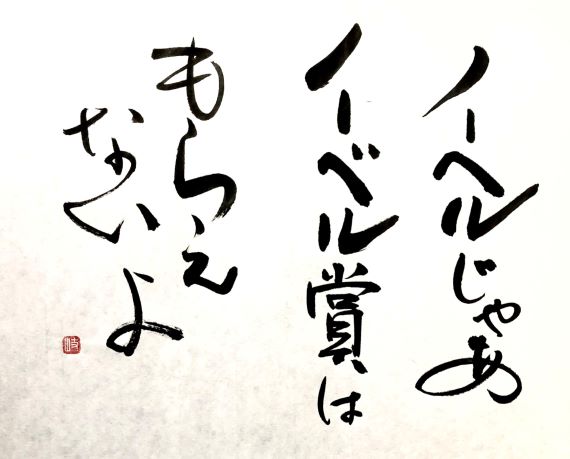 ノーヘルじゃあ
ノーベル賞は
もらえ
ないよ